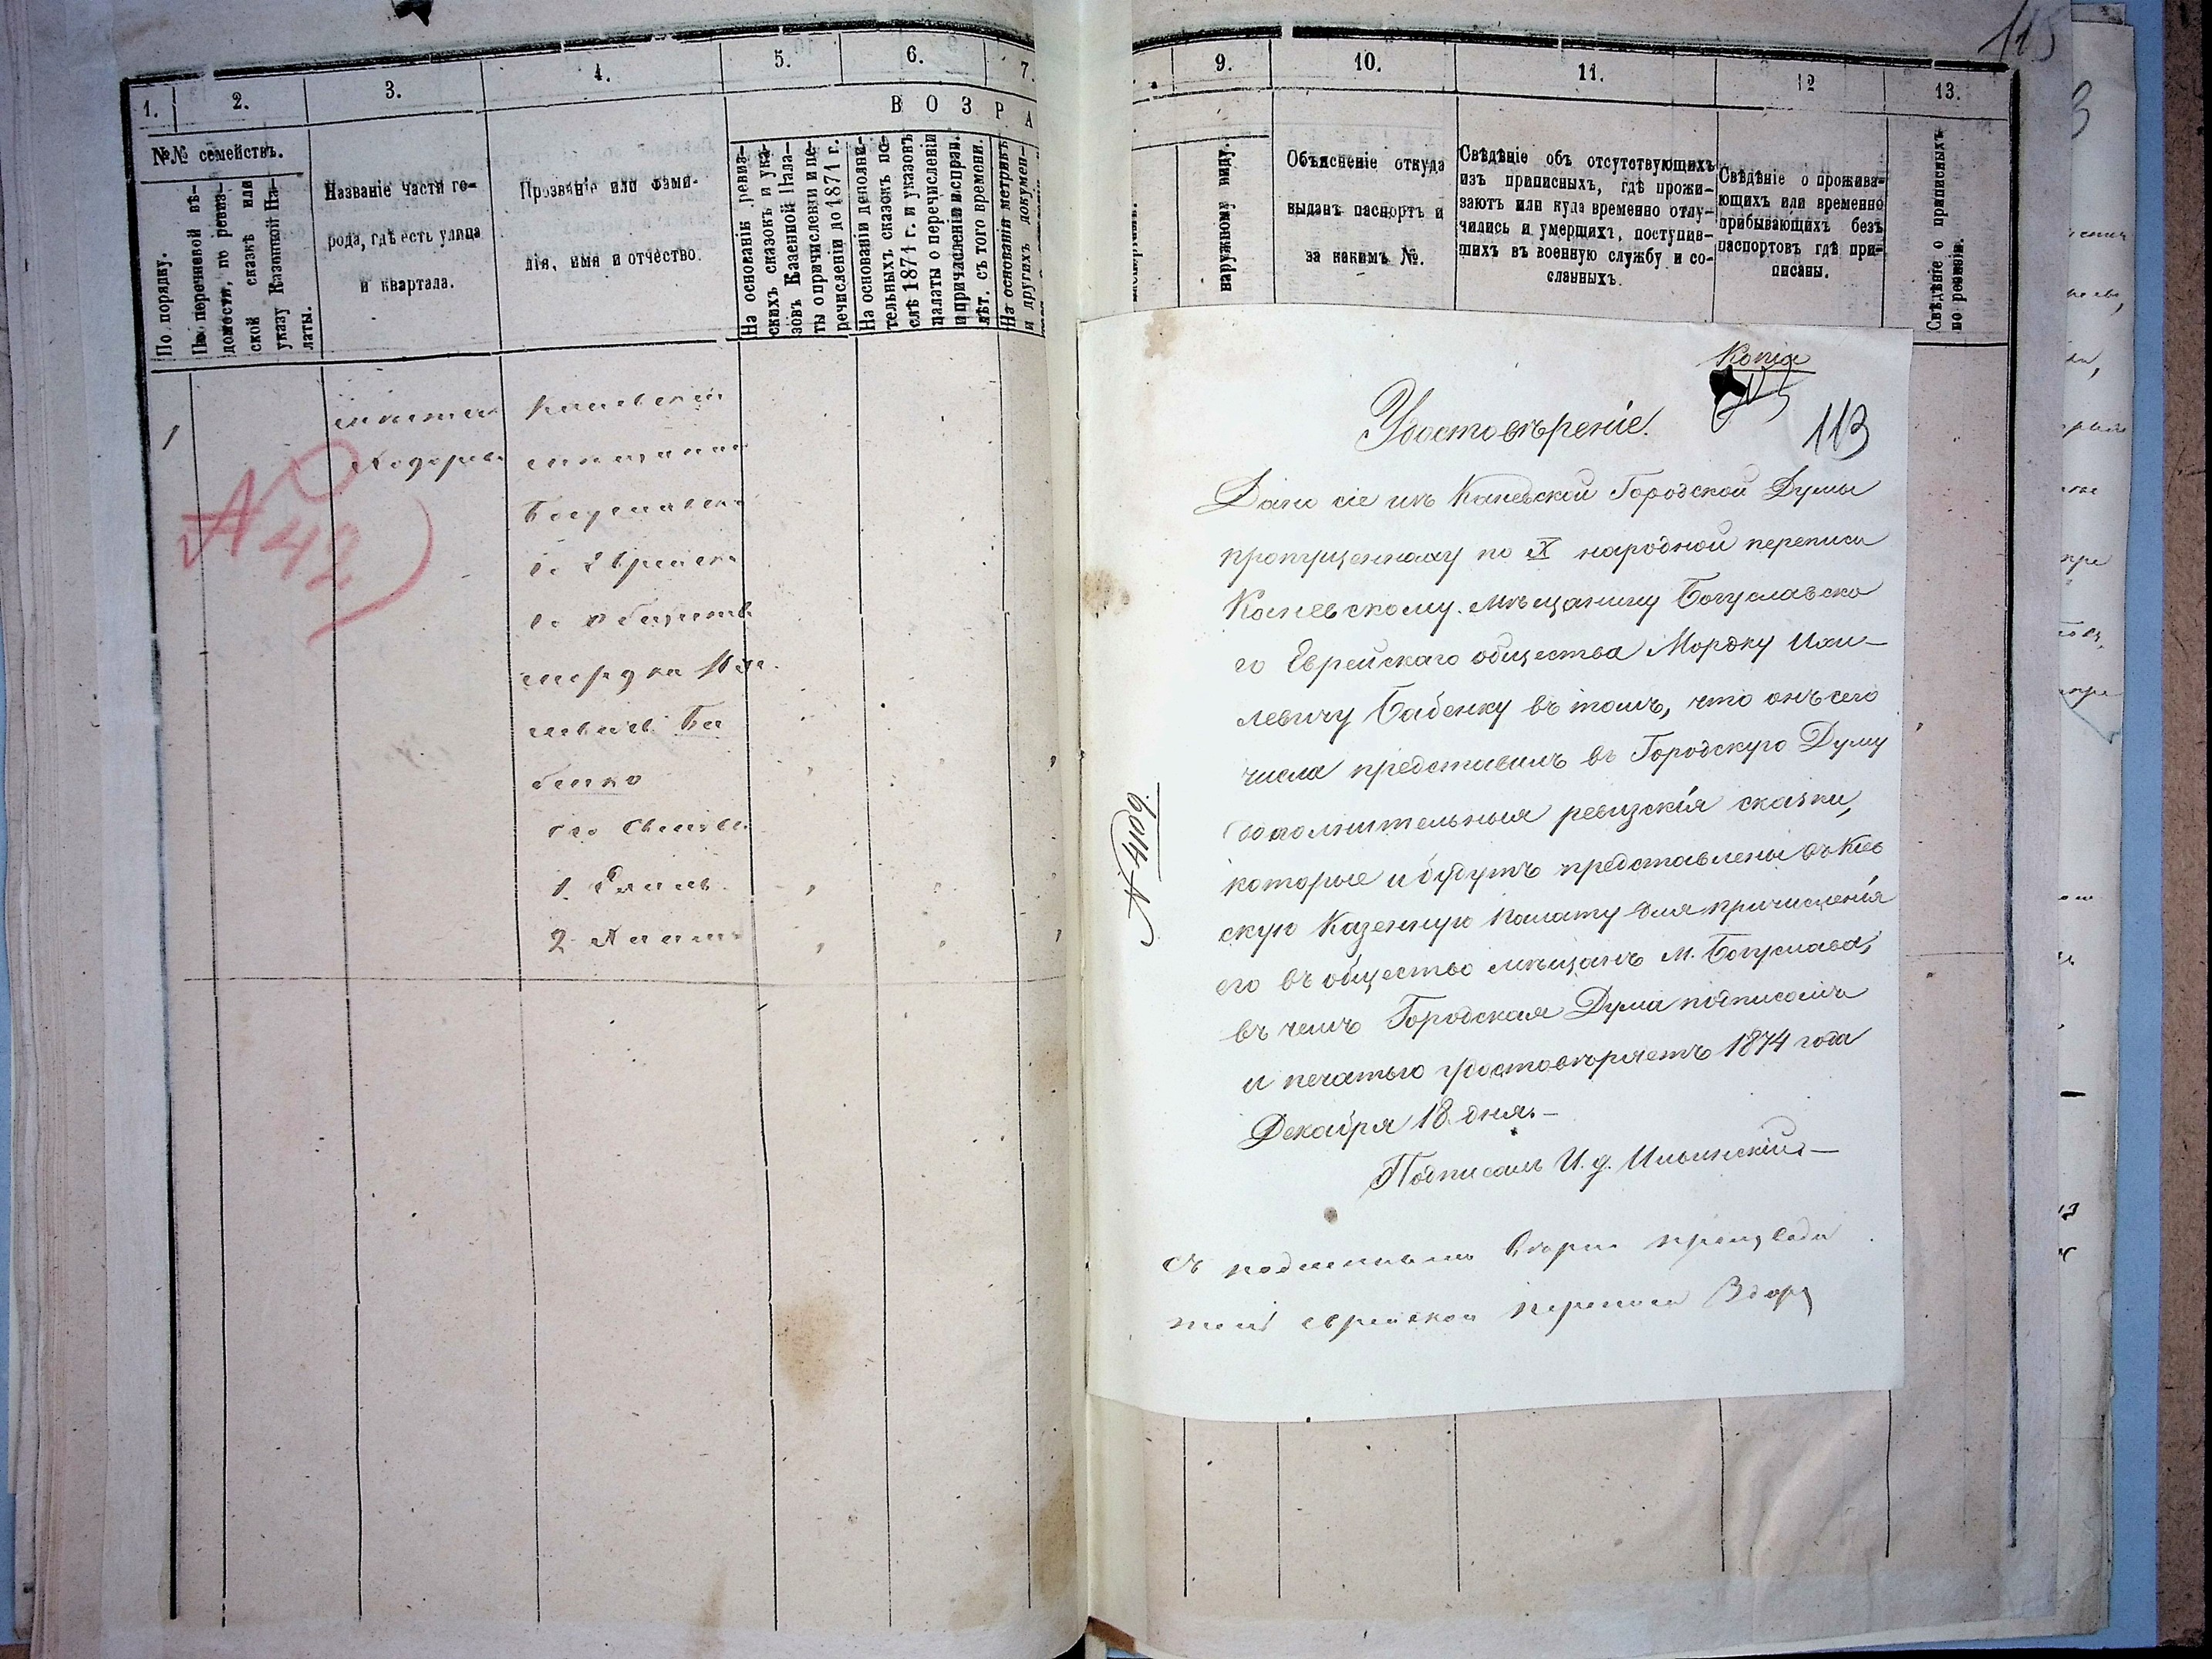 1. 2. 3. 4. 5. 6. 7.
В О З Р А
№№ семействъ.
По порядку.
По перечневой вѣ-
домости, по ревиз-
ской сказкѣ или
указу Казенной Па-
латы.
Названіе части го-
рода, гдѣ есть улица
и квартала.
Прозваніе или фами-
лія, имя и отчество.
На основаніи ревиз-
скихъ сказокъ и ука-
зовъ Казенной Пала-
ты о причисленіи и пе-
речисленіи до 1871 г.
На основаніи дополни-
тельныхъ сказокъ по-
слѣ 1871 г. и указовъ
палаты о перечисленіи
и причисленіи и справ.
лѣт. съ того времени.
На основаніи метрикъ
и другихъ докумен-
1
№ 42
мѣстеч
Ходоровъ
Каневскій
мѣщанинъ
Богуславска
го Еврейска
го общества
Мордко Ихи
левичъ Ба
бенко
его сыновья
1
2
115
9. 10. 11. 12 13.
наружному виду.
Объясненіе откуда
выданъ паспортъ и
за какимъ №.
Свѣдѣніе объ отсутствующихъ
изъ приписныхъ, гдѣ прожи-
ваютъ или куда временно отлу-
чились и умершихъ, поступив-
шихъ въ военную службу и со-
сланныхъ.
Свѣдѣніе о прожива-
ющихъ или временно
прибывающихъ безъ
паспортовъ гдѣ при-
писаны.
Свѣдѣніе о приписныхъ
по ревизіи.
Копія
113
Удостовѣреніе.
Дано сіе изъ Каневской Городской Думы
пропущенному по X народной переписи
Каневскому мѣщанину Богуславско
го Еврейскаго общества Мордку Ихи-
левичу Бабенку въ томъ, что онъ сего
числа представилъ въ Городскую Думу
дополнительныя ревизскія сказки,
которые и будутъ представлены въ Кіев
скую Казенную Палату для причисленія
его въ общество мѣщанъ м. Богуслава,
въ чемъ Городская Дума подписомъ
и печатью удостовѣряетъ 1874 года
Декабря 18 дня.—
Подписалъ И. д. Ильинскій—
Съ подлиннымъ вѣрно производи
тель еврейской переписи